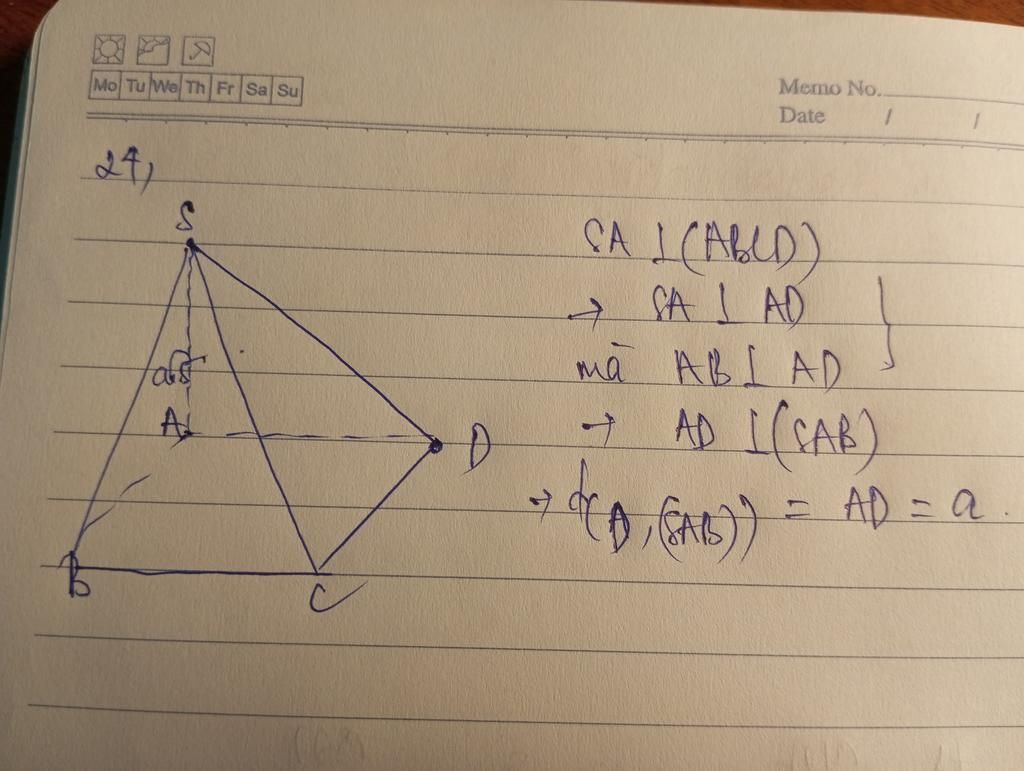 Mo Tu We Th Fr Sa Su
Memo No.
Date / /
24,
S
SA ⊥ (ABCD)
→ SA ⊥ AD
mà AB ⊥ AD
A
→ AD ⊥ (SAB)
D
→ d(D, (SAB)) = AD = a.
B
C